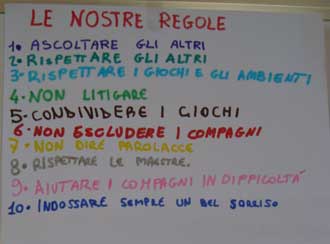 LE NOSTRE REGOLE
1. ASCOLTARE GLI ALTRI
2. RISPETTARE GLI ALTRI
3- RISPETTARE I GIOCHI E GLI AMBIENTI
4- NON LITIGARE
5- CONDIVIDERE I GIOCHI
6- NON ESCLUDERE I COMPAGNI
7- NON DIRE PAROLACCE
8- RISPETTARE LE MAESTRE.
9- AIUTARE I COMPAGNI IN DIFFICOLTÁ
10. INDOSSARE SEMPRE UN BEL SORRISO